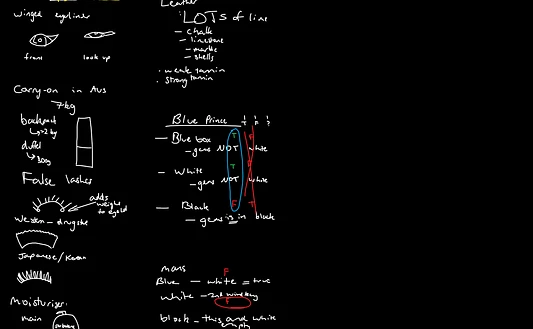 winged eyeliner
front look up
Carry-on in Aus
7kg
backpack
duffel
False lashes
adds weight to eyelid
Western - drugstore
Japanese / Korean
Moisturiser
main
Leather
LOTS of lime
- chalk
- limestone
- marble
- shells
· weak tannin
· strong tannin
Blue Prince
- Blue box T F
- gems NOT white
- White T
- gems NOT white
- Black F T
- gem is in black
F
Blue - white = true
white - 2nd
F
black - this and white